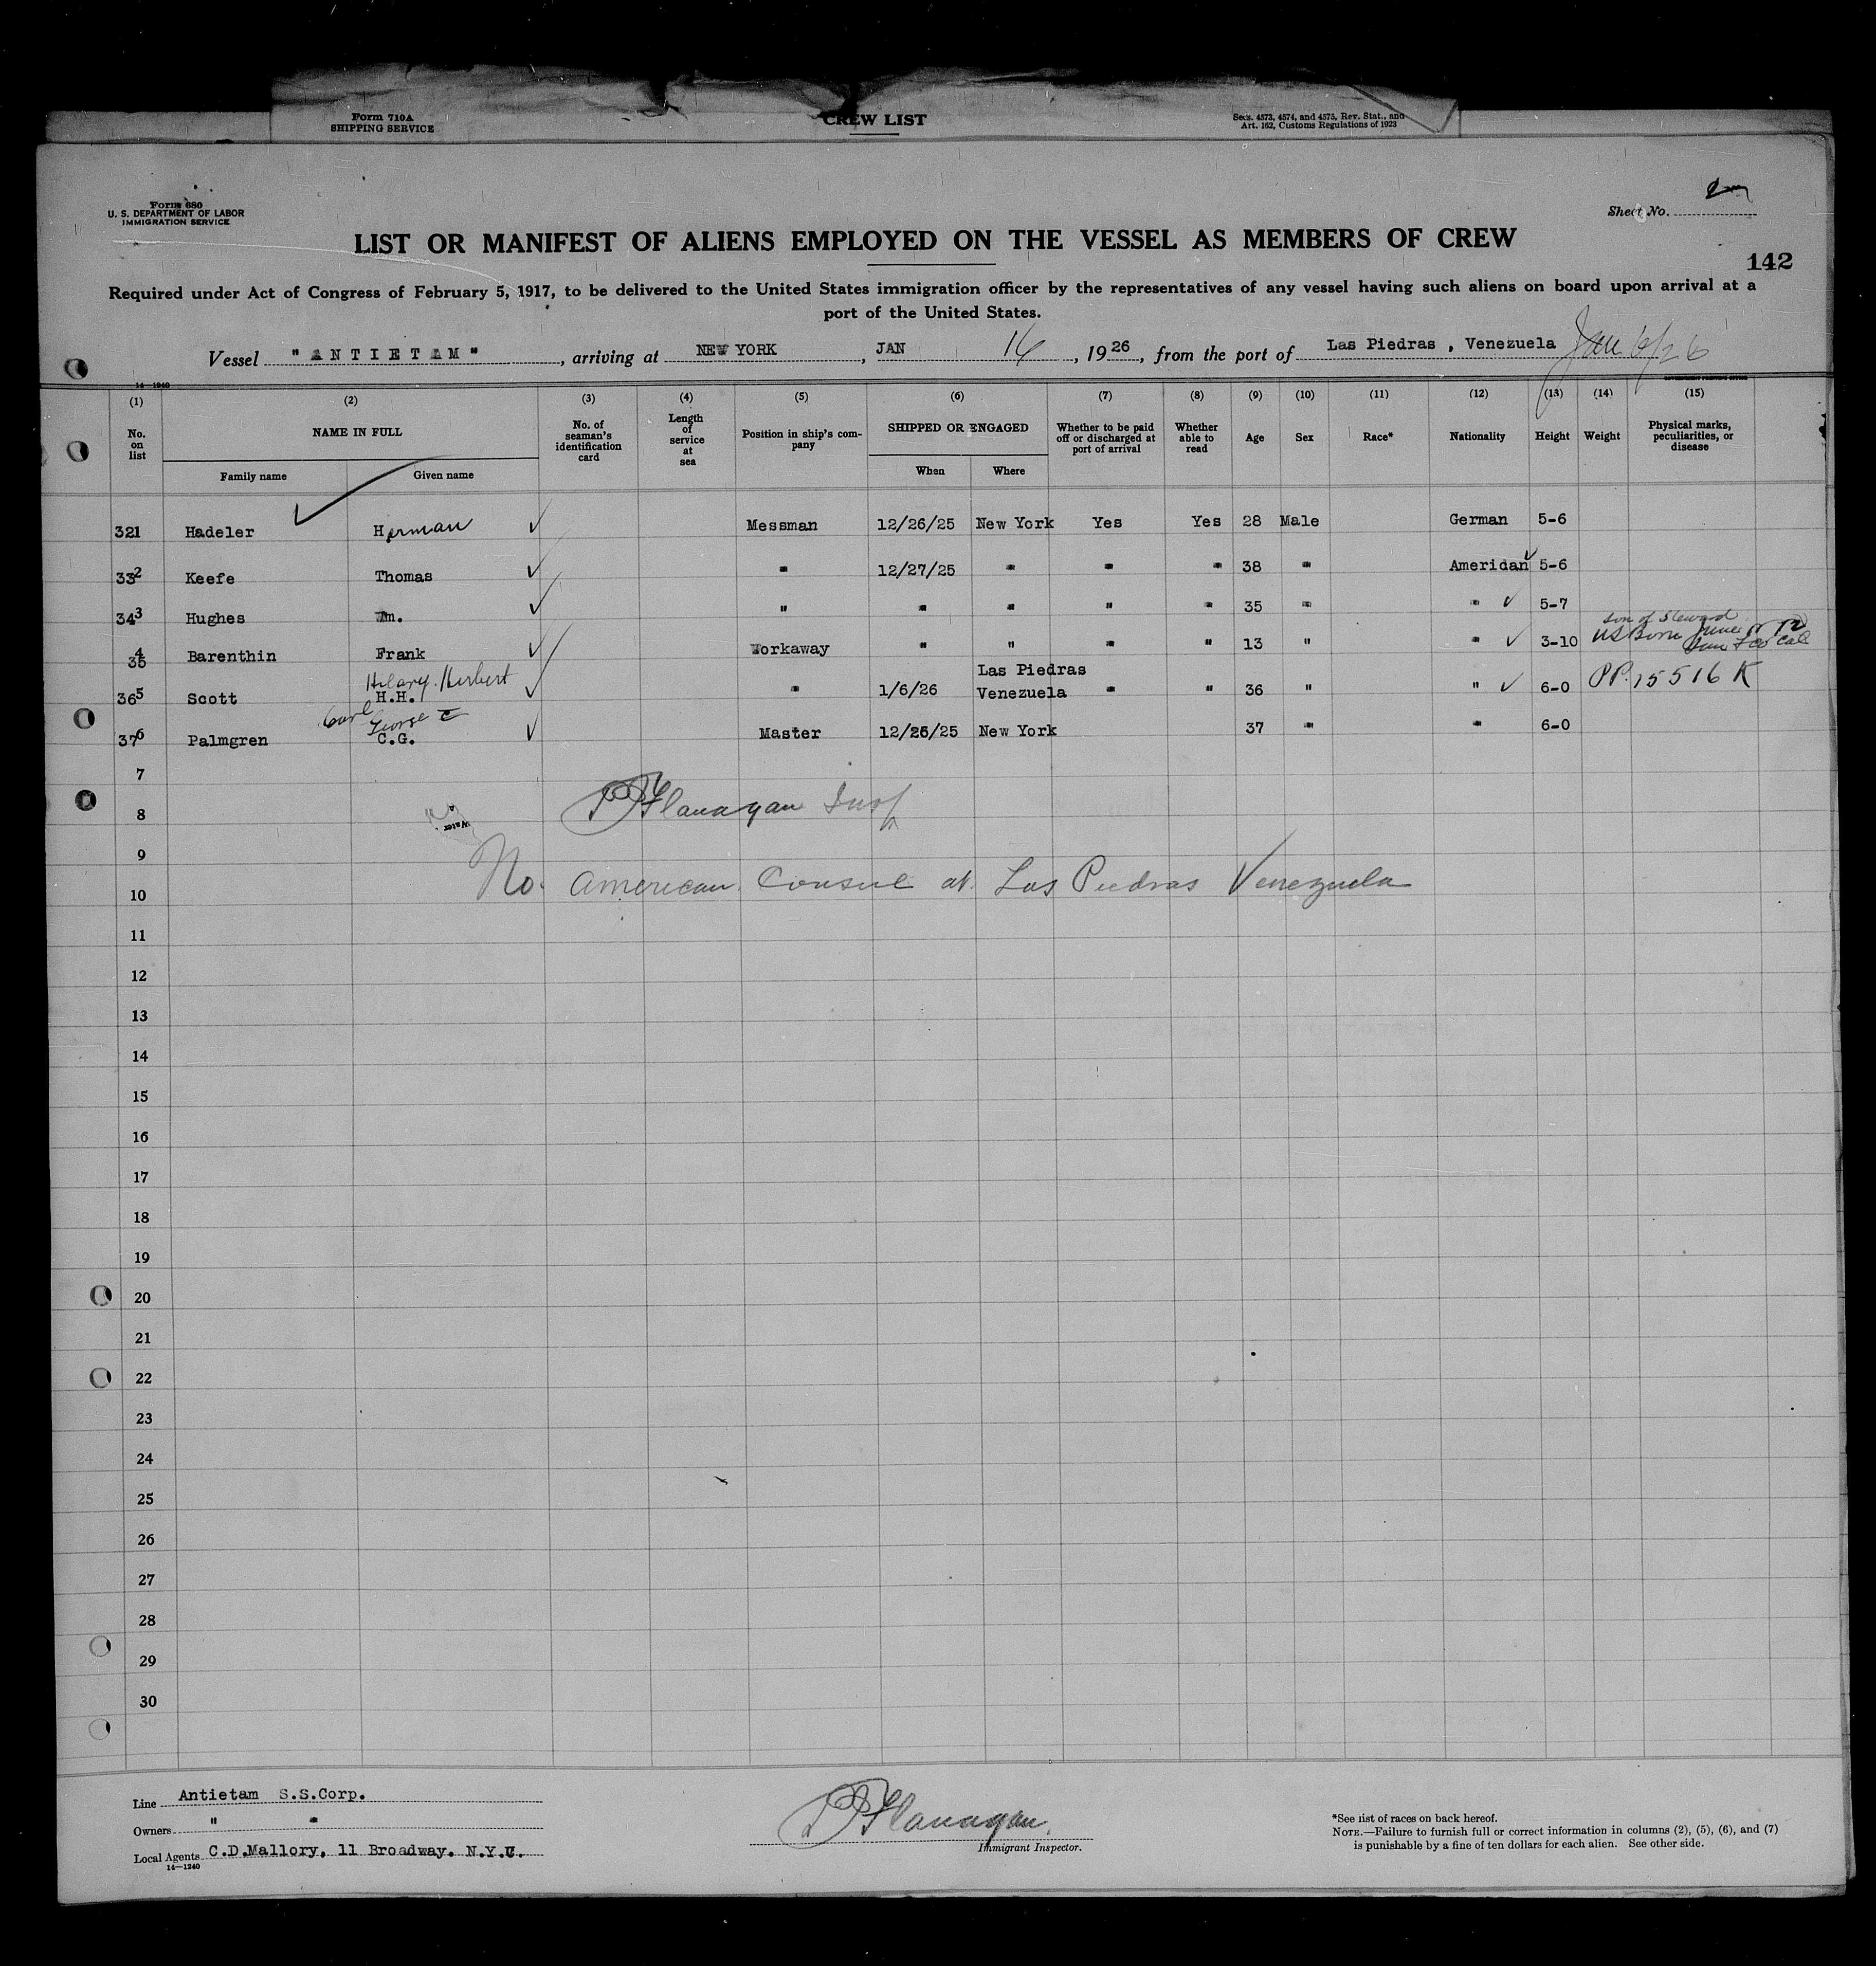 Form 710A
SHIPPING SERVICE
CREW LIST
Secs. 4573, 4574, and 4575, Rev. Stat., and
Art. 162, Customs Regulations of 1923
Form 680
U. S. DEPARTMENT OF LABOR
IMMIGRATION SERVICE
Sheet No.
LIST OR MANIFEST OF ALIENS EMPLOYED ON THE VESSEL AS MEMBERS OF CREW
142
Required under Act of Congress of February 5, 1917, to be delivered to the United States immigration officer by the representatives of any vessel having such aliens on board upon arrival at a
port of the United States.
Vessel "ANTIETAM", arriving at NEW YORK, JAN 16, 1926, from the port of Las Piedras , Venezuela Jan 6/26
14-1240
(1) (2) (3) (4) (5) (6) (7) (8) (9) (10) (11) (12) (13) (14) (15)
No. on list
NAME IN FULL
Family name Given name
No. of seaman's identification card
Length of service at sea
Position in ship's company
SHIPPED OR ENGAGED
When Where
Whether to be paid off or discharged at port of arrival
Whether able to read
Age
Sex
Race*
Nationality
Height
Weight
Physical marks, peculiarities, or disease
32 1 Hadeler Herman Messman 12/26/25 New York Yes Yes 28 Male German 5-6
33 2 Keefe Thomas " 12/27/25 " " " 38 " Ameridan 5-6
34 3 Hughes Wm. " " " " " 35 " " 5-7
Son of Steward
35 4 Barenthin Frank Workaway " " " " 13 " " 3-10 US Born June 12 San Fco Cal
Hilary Herbert
36 5 Scott H.H. " 1/6/26 Las Piedras Venezuela " " 36 " " 6-0 PP. 15516 K
Carl George
37 6 Palmgren C.G. Master 12/26/25 New York 37 " " 6-0
7
8 Flanagan Insp
9
No American Consul at Las Piedras Venezuela
10
11
12
13
14
15
16
17
18
19
20
21
22
23
24
25
26
27
28
29
30
Line Antietam S.S.Corp.
Owners " "
Local Agents C.D.Mallory, 11 Broadway. N.Y.C.
14-1240
Flanagan
Immigrant Inspector.
*See list of races on back hereof.
NOTE.—Failure to furnish full or correct information in columns (2), (5), (6), and (7)
is punishable by a fine of ten dollars for each alien. See other side.